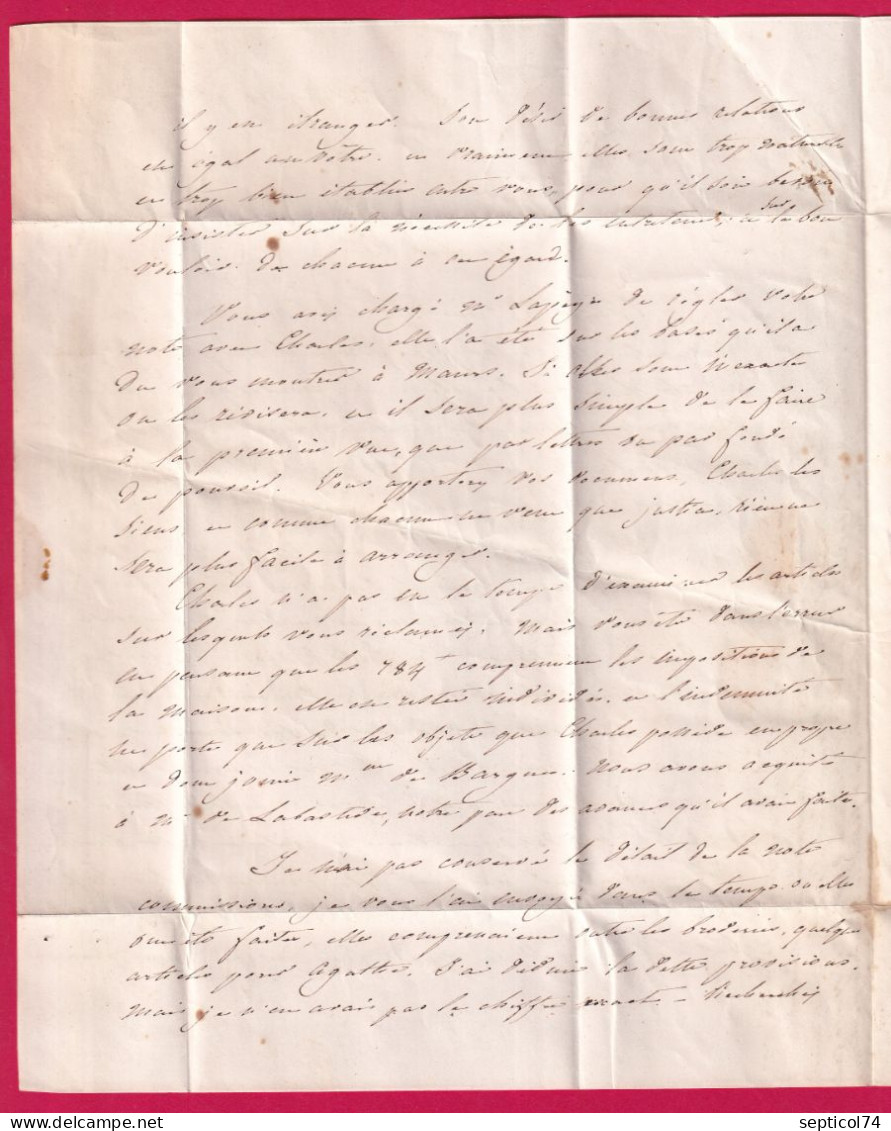 il y en étranger. Son désir de bonnes relations
est égal au vôtre. et vraiment elles sont trop naturelles
et trop bien établies entre vous, pour qu'il soit besoin
d'insister sur la nécessité de les entretenir, et sur le bon
vouloir de chacun à cet égard.
Vous avez chargé Mr Lapeyre de régler votre
note avec Charles, elle l'a été sur les bases qu'il a
du vous montrer à Maurs. Si elles sont inexactes
on les révisera. et il sera plus simple de le faire
à la première vue, que par lettres ou par fondé
de pouvoir. Vous apporterez vos documens, Charles les
siens, et comme chacun ne veut que justice, rien ne
sera plus facile à arranger.
Charles n'a pas eu le temps d'examiner les articles
sur lesquels vous réclamez. Mais vous êtes dans l'erreur
en pensant que les 784 f comprennent les impositions de
la maison. elle est restée indivise, et l'indemnité
ne porte que sur les objets que Charles possède en propre
et dont jouit Mme de Bargues. Nous avons acquitté
à Mr de Labastide, notre part des avances qu'il avait faites.
Je n'ai pas conservé le détail de la note
commissions, je vous l'ai envoyé dans le temps où elles
ont été faites, elles comprenaient outre les broderies, quelques
articles pour Agathe. J'ai déduit la dette provisions.
Mais je n'en avais pas le chiffre exact - Recherchez
septicol74